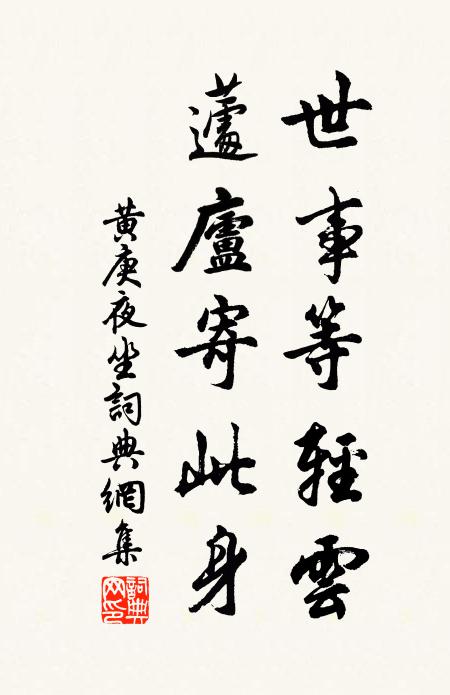 世事等輕雲
蘧廬寄此身
黃庚夜坐詞典網集
詞典网印